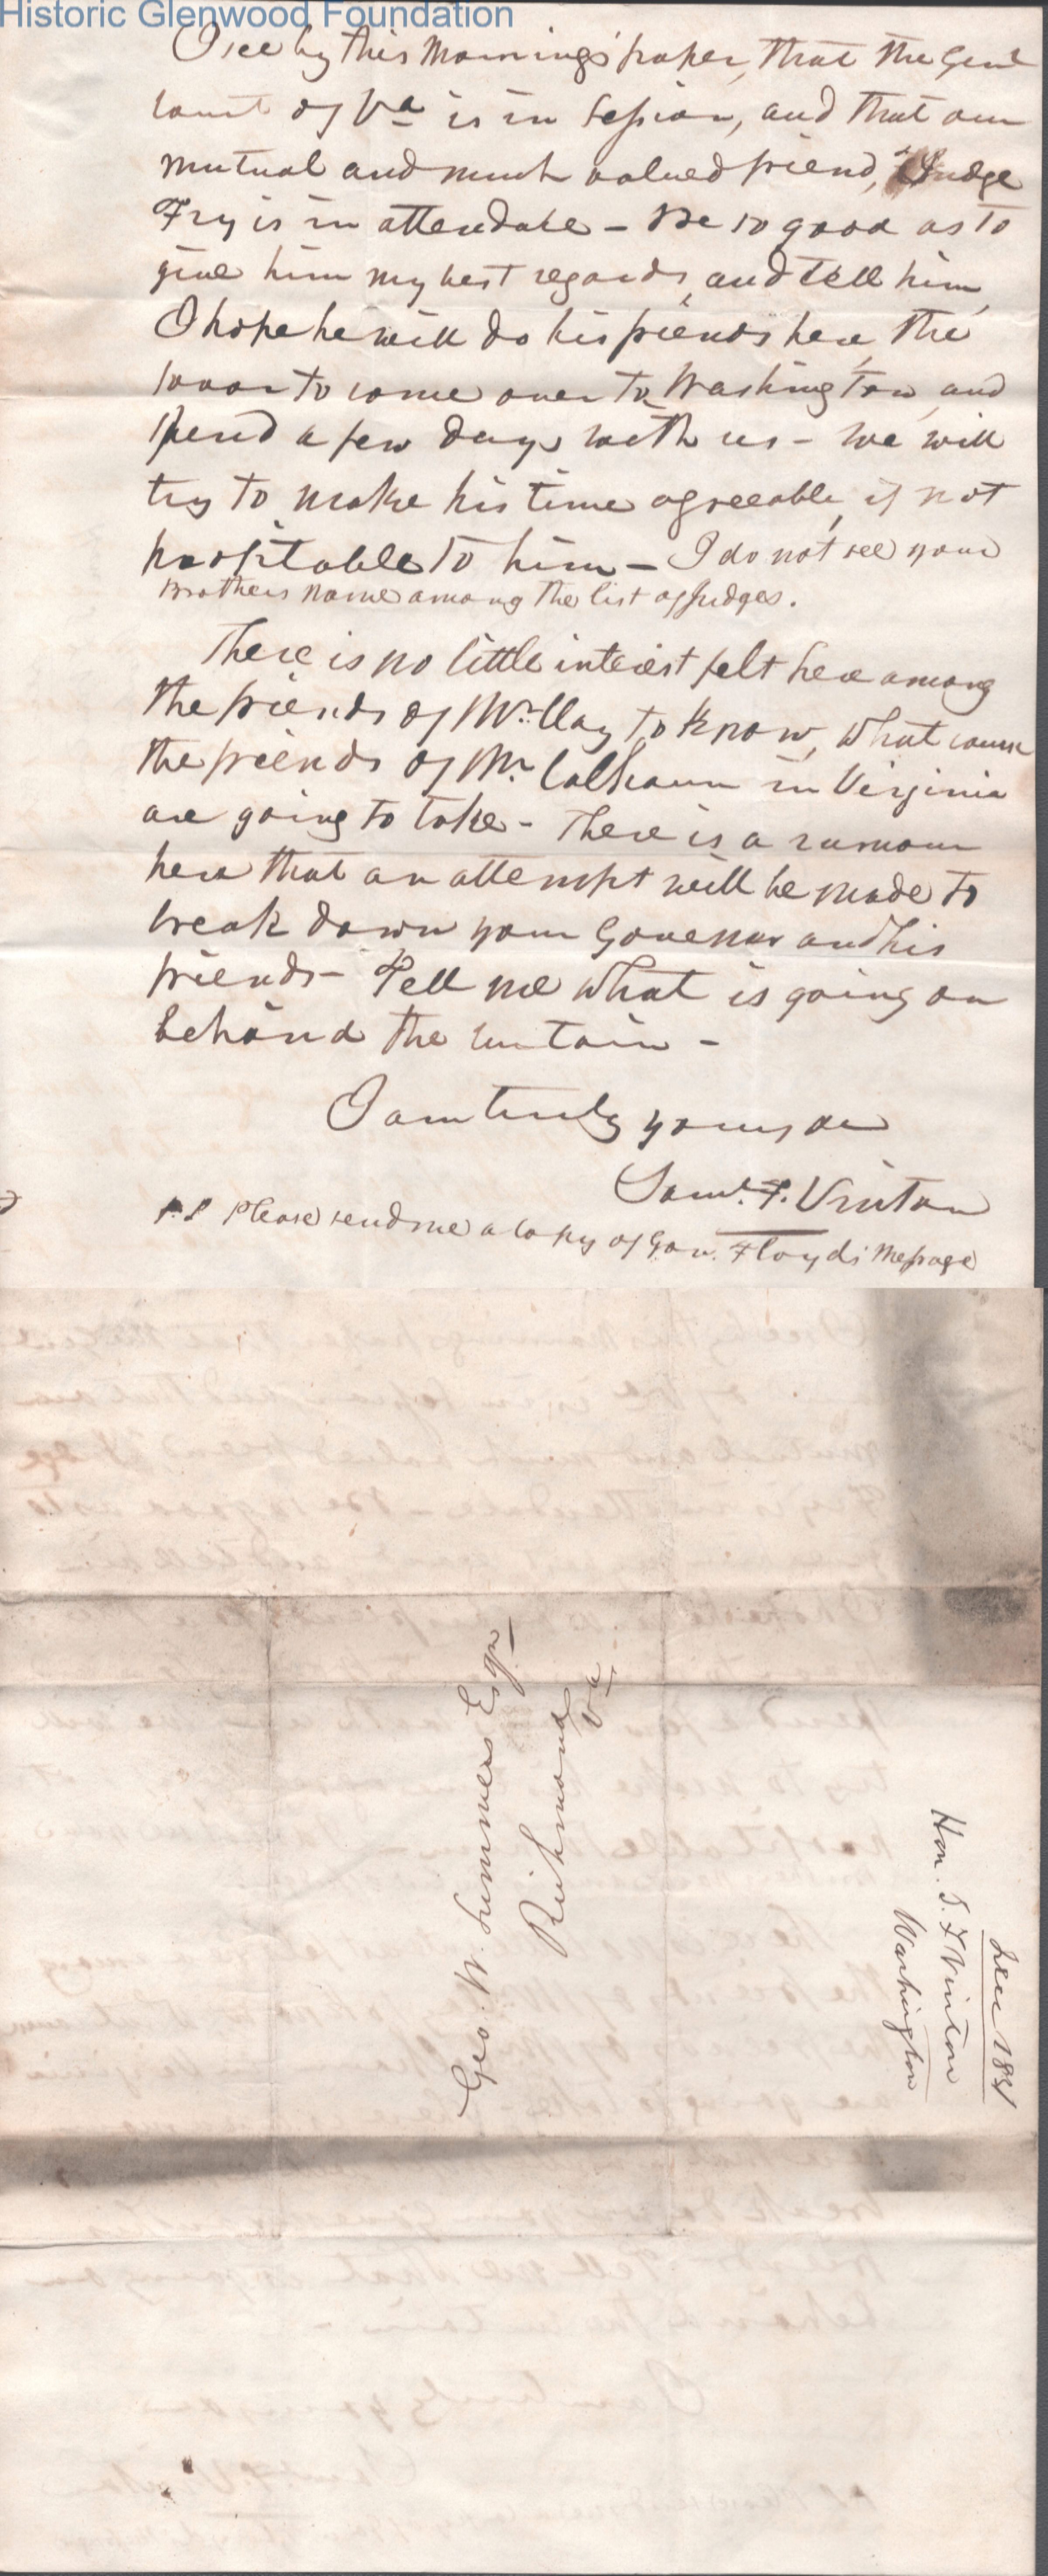 Historic Glenwood Foundation
I see by this Mornings paper, that the Genl
Court of Va is in Session, and that our
mutual and much valued friend, Judge
Fry is in attendake – Be so good as to
give him my best regards, and tell him,
I hope he will do his friends here, the
favor to come over to Washington, and
spend a few days with us – We will
try to make his time agreeable, if not
profitable to him – I do not see your
Brothers name among the list of Judges.
There is no little interest felt here among
the friends of Mr. Clay to know, what course
the friends of Mr. Calhoun in Virginia
are going to take – There is a rumour
here that an attempt will be made to
break down your Govenor and his
friends – Tell me what is going on
behind the curtain –
I am truly yours
Saml. F. Vinton
P.S Please send me a copy of Gov. Floyds Message
Geo. W. Summers Esqr
Richmond
Va
Dec 1831
Hon. S. F Vinton
Washington